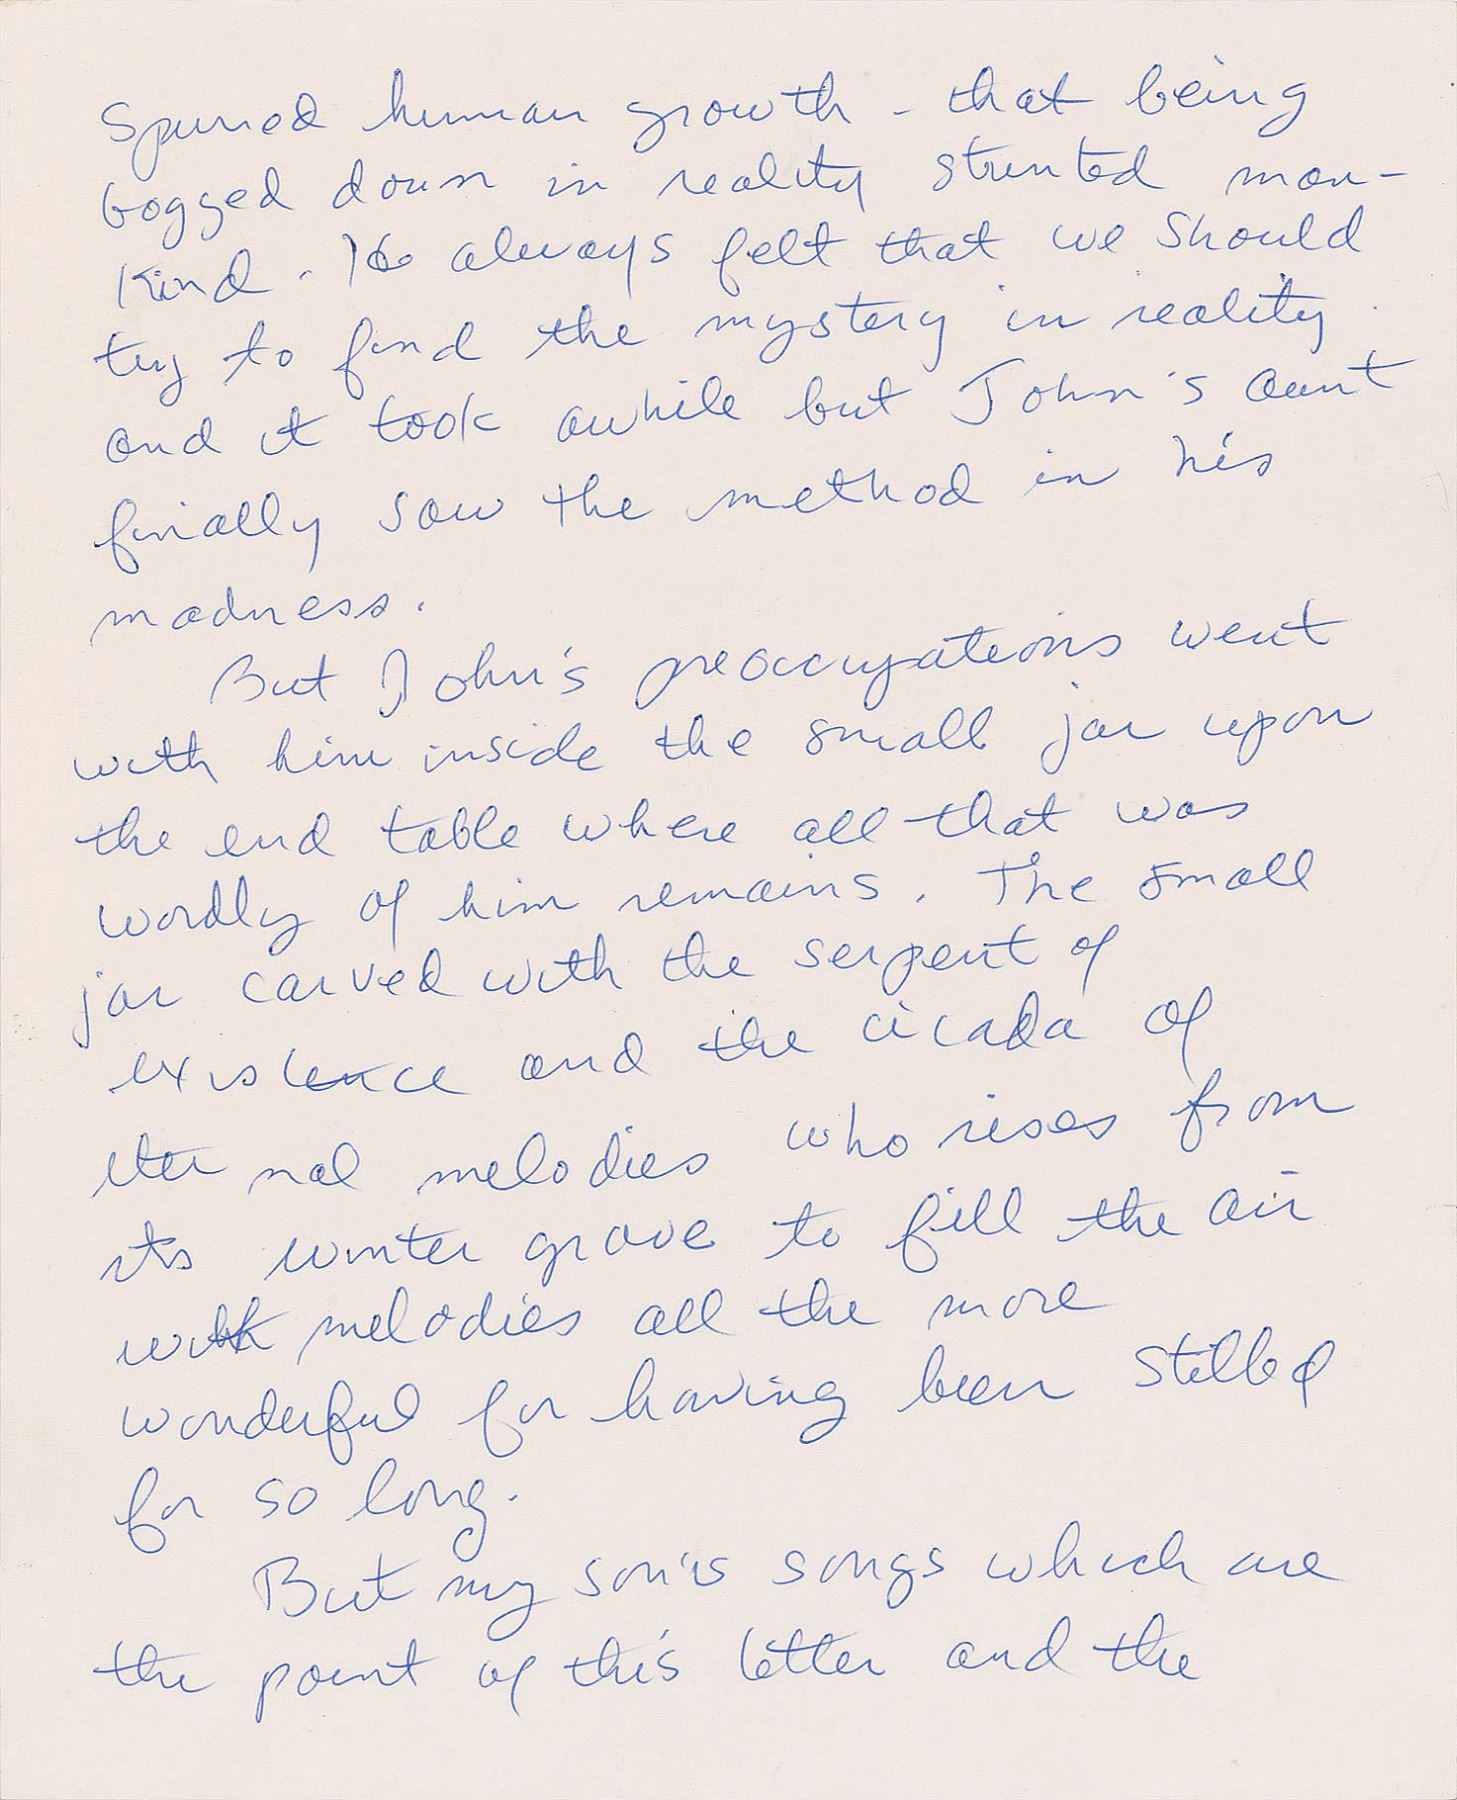 Spurred human growth - that being
bogged down in reality stunted man-
kind. He always felt that we should
try to find the mystery in reality.
and it took awhile but John's aunt
finally saw the method in his
madness.
But John's preoccupations went
with him inside the small jar upon
the end table where all that was
wordly of him remains. The small
jar carved with the serpent of
existence and the cicada of
eternal melodies who rises from
its winter grave to fill the air
with melodies all the more
wonderful for having been stilled
for so long.
But my son's songs which are
the point of this letter and the